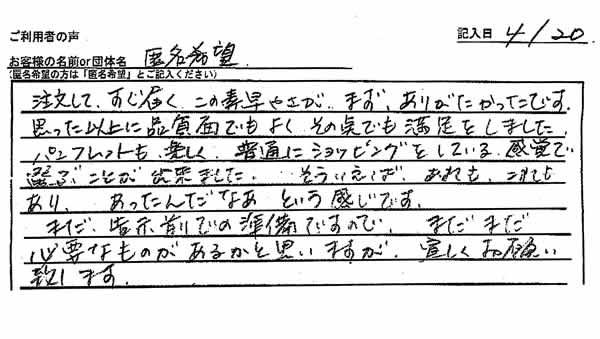 ご利用者の声
記入日 4/20
お客様の名前or団体名 匿名希望
(匿名希望の方は「匿名希望」とご記入ください)
注文して、すぐ届く、この素早やさが、まず、ありがたかったです。
思った以上に品質面でもよく その点でも満足をしました。
パンフレットも、楽しく、普通にショッピングをしている、感覚で
選ぶことが出来ました。そういえば、あれも、これも
あり、あったんだなあ という感じです。
まだ、指示前での準備ですので、まだまだ
必要なものがあるかと思いますが、宜しくお願い
致します。